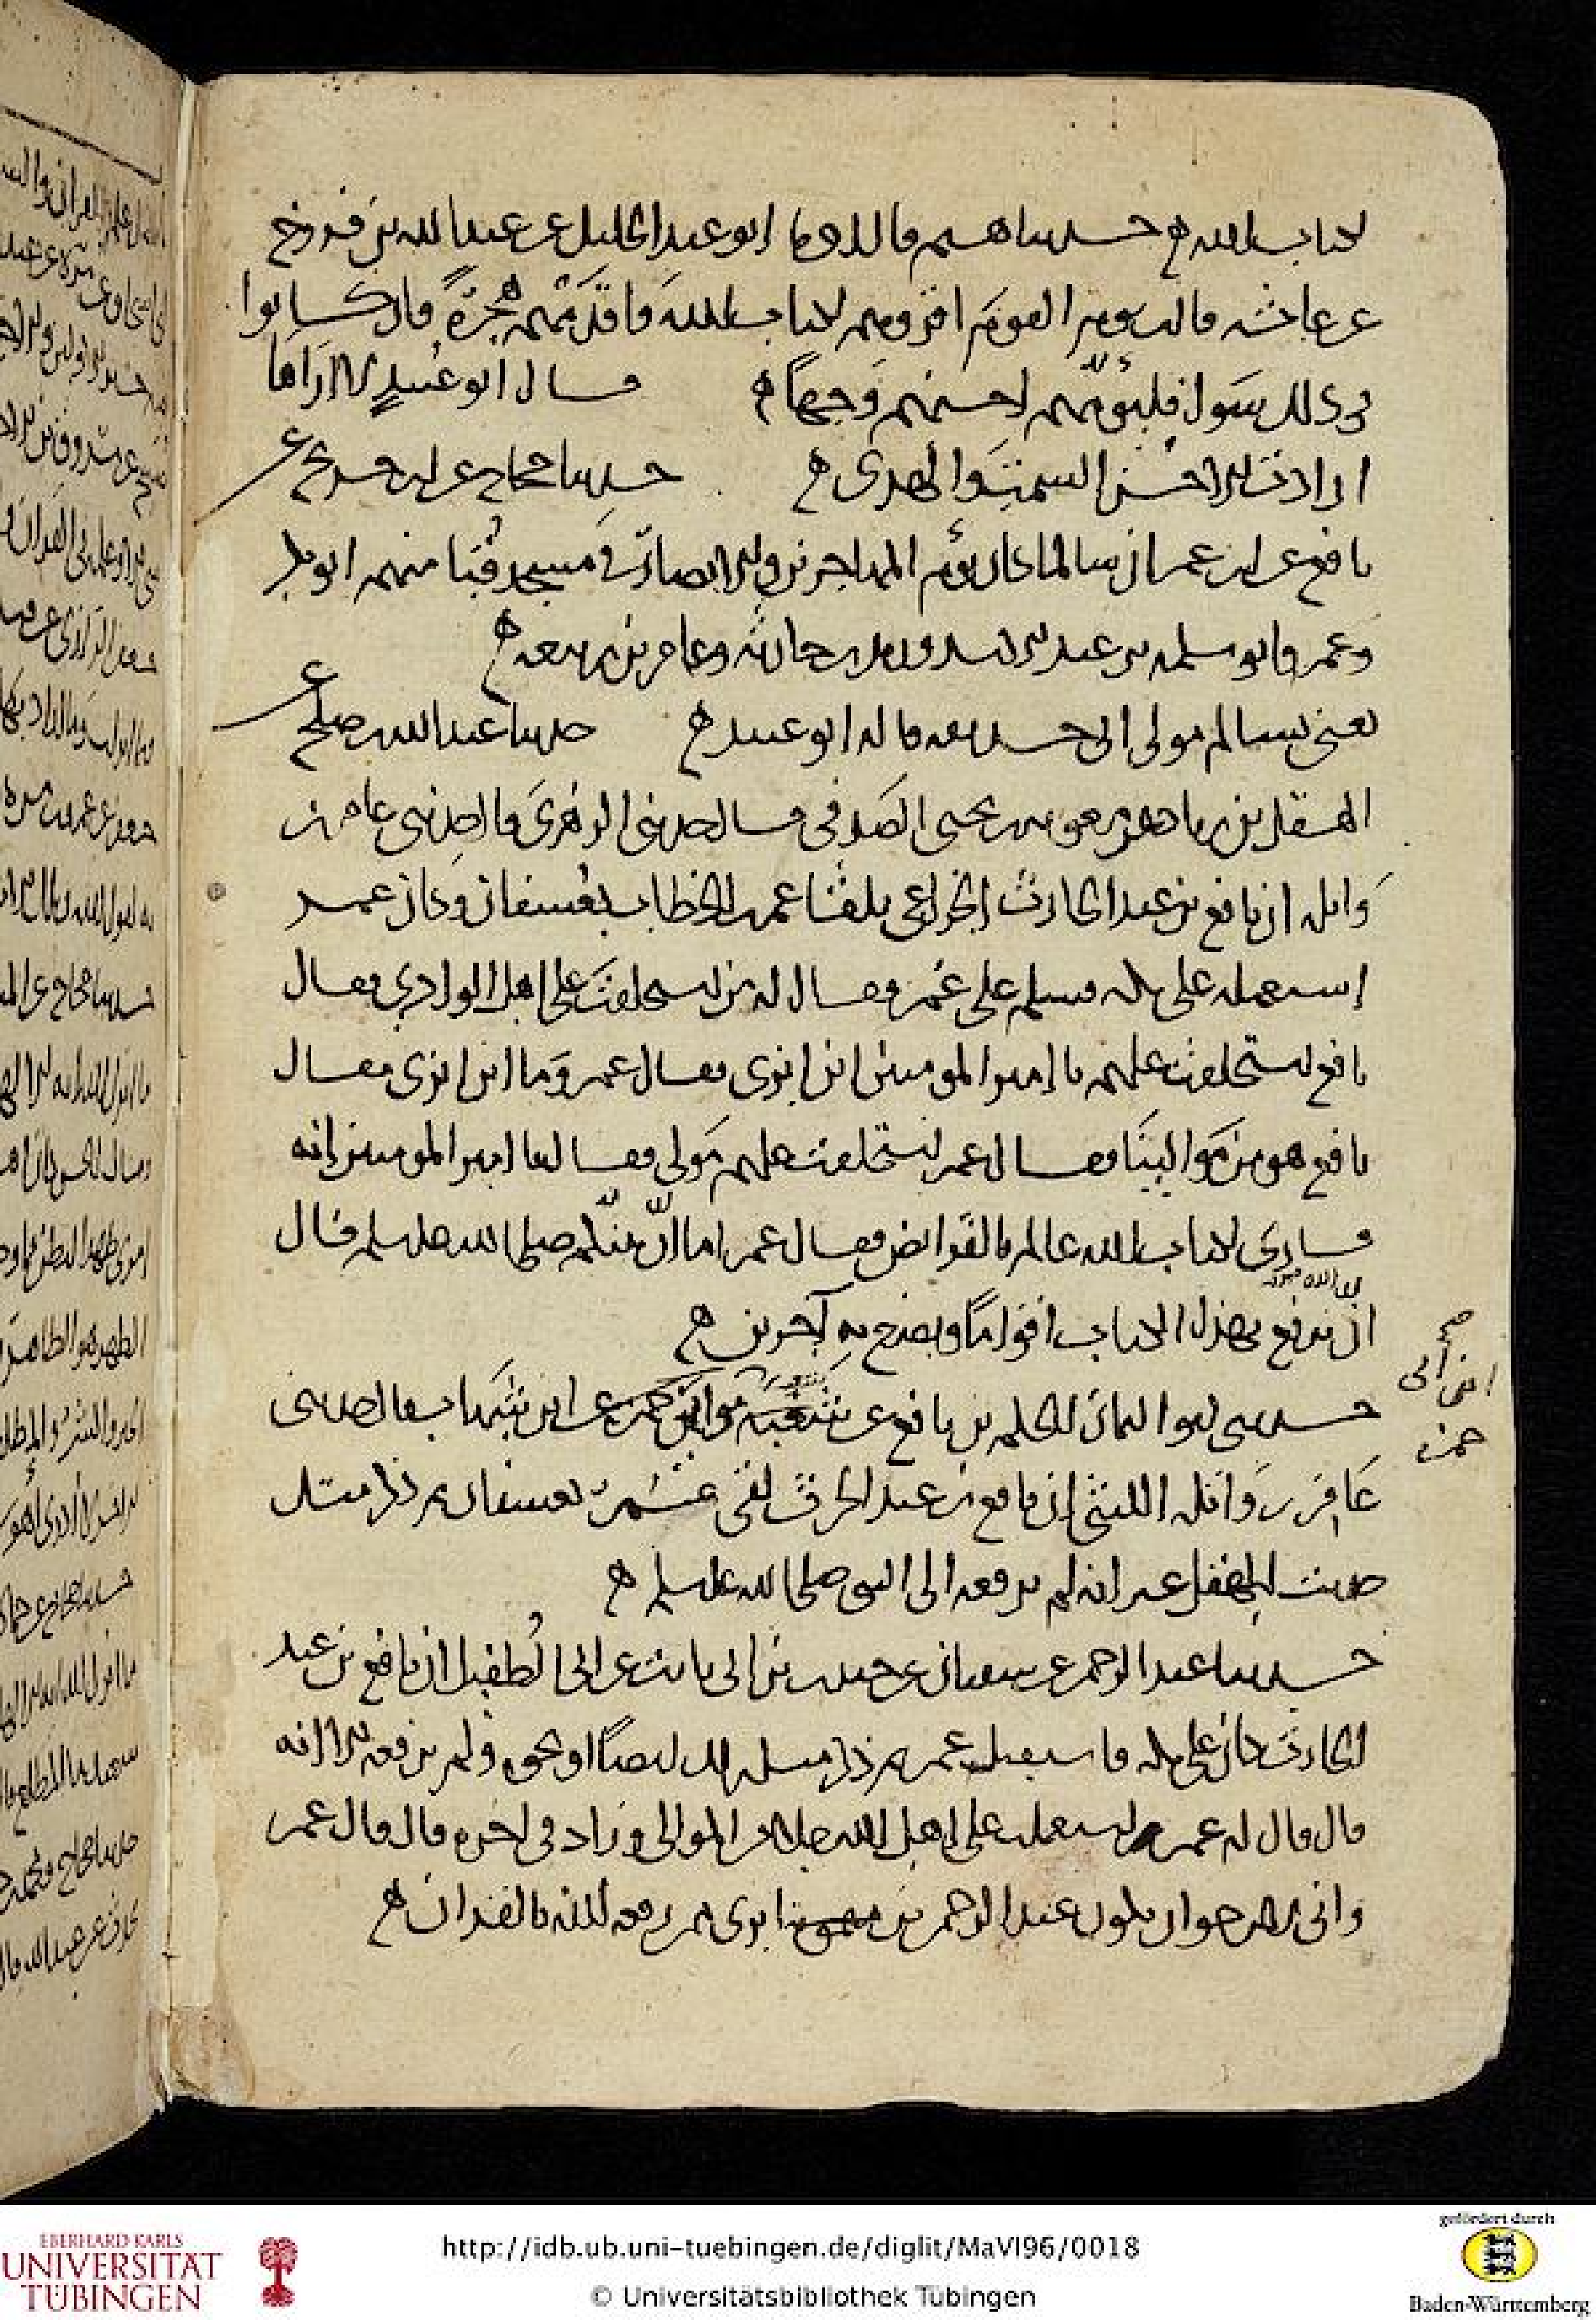 لكتاب الله ه حدثنا هشيم قال انا ابو عبد الجليل عن عبد الله بن فروخ
عن عائشة قالت يؤم القوم اقرؤهم لكتاب الله فاقدمهم هجرة فان كانوا
في ذلك سوا فليؤمهم احسنهم وجها ه قال ابو عبيد لا اراها
ارادت الا حسن السمت والهدى ه حدثنا حجاج عن ابن جريج عن
نافع عن ابن عمر ان سالما كان يؤم المهاجرين والانصار في مسجد قبا منهم ابو بكر
وعمر وابو سلمه بن عبد الاسد وزيد بن حارثة وعامر بن ربيعه ه
يعني بسالم مولى ابي حذيفه قاله ابو عبيد ه حدثنا عبد الله بن صالح عن
الهقل بن زياد عن معويه بن يحيى الصدفي قال حدثني الزهري قال حدثني عامر بن
واثله ان نافع بن عبد الحارث الخزاعي تلقا عمر بن الخطاب بعسفان وكان عمر
استعمله على مكه فسلم على عمر فقال له من استخلفت على اهل الوادي فقال
نافع استخلفت عليهم يا امير المومنين ابن ابزى فقال عمر وما ابن ابزى فقال
نافع هو من موالينا فقال عمر استخلفت عليهم مولى فقال يا امير المومنين انه
قارى لكتاب الله عالم بالفرائض فقال عمر اما ان نبيكم صلى الله عليه وسلم قال
ان الله
ان يرفع بهذا الكتاب اقواما ويضع به آخرين ه
صح
ابن ابي
حمزه
حدثني ابو اليمان الحكم بن نافع عن شعيب بن ابي حمزه عن ابن شهاب قال حدثني
عامر بن واثله الليثي ان نافع بن عبد الحرث لقي عمر بعسفان ثم ذكر مثل
حديث الهقل غير انه لم يرفعه الى النبي صلى الله عليه وسلم ه
حدثنا عبد الرحمن عن سفيان عن حبيب بن ابي ثابت عن ابي الطفيل ان نافع بن عبد
الحارث كان على مكه فاستقبل عمر ثم ذكر مثل ذلك ايضا او نحوه ولم يرفعه الا انه
قال قال له عمر استعملت على اهل الله رجلا من الموالي وزاد في اخره قال قال عمر
واني لارجو ان يكون عبد الرحمن بن ابزى ممن رفعه الله بالقران ه
EBERHARD KARLS
UNIVERSITÄT
TÜBINGEN
http://idb.ub.uni-tuebingen.de/diglit/MaVI96/0018
© Universitätsbibliothek Tübingen
gefördert durch
Baden-Württemberg